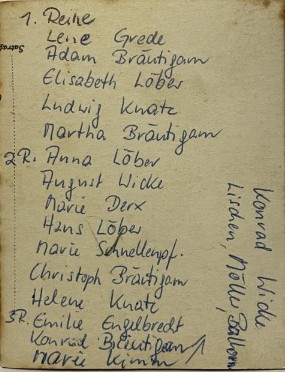 1. Reihe
Lene Grede
Adam Bräutigam
Elisabeth Löber
Ludwig Knatz
Martha Bräutigam
2R. Anna Löber
August Wicke
Marie Derx
Hans Löber
Marie Schnellenpf.
Christoph Bräutigam
Helene Knatz
3R. Emilie Engelbredt
Konrad Bräutigam
Marie Kimm
Konrad Wicke
Lischen, Möller,